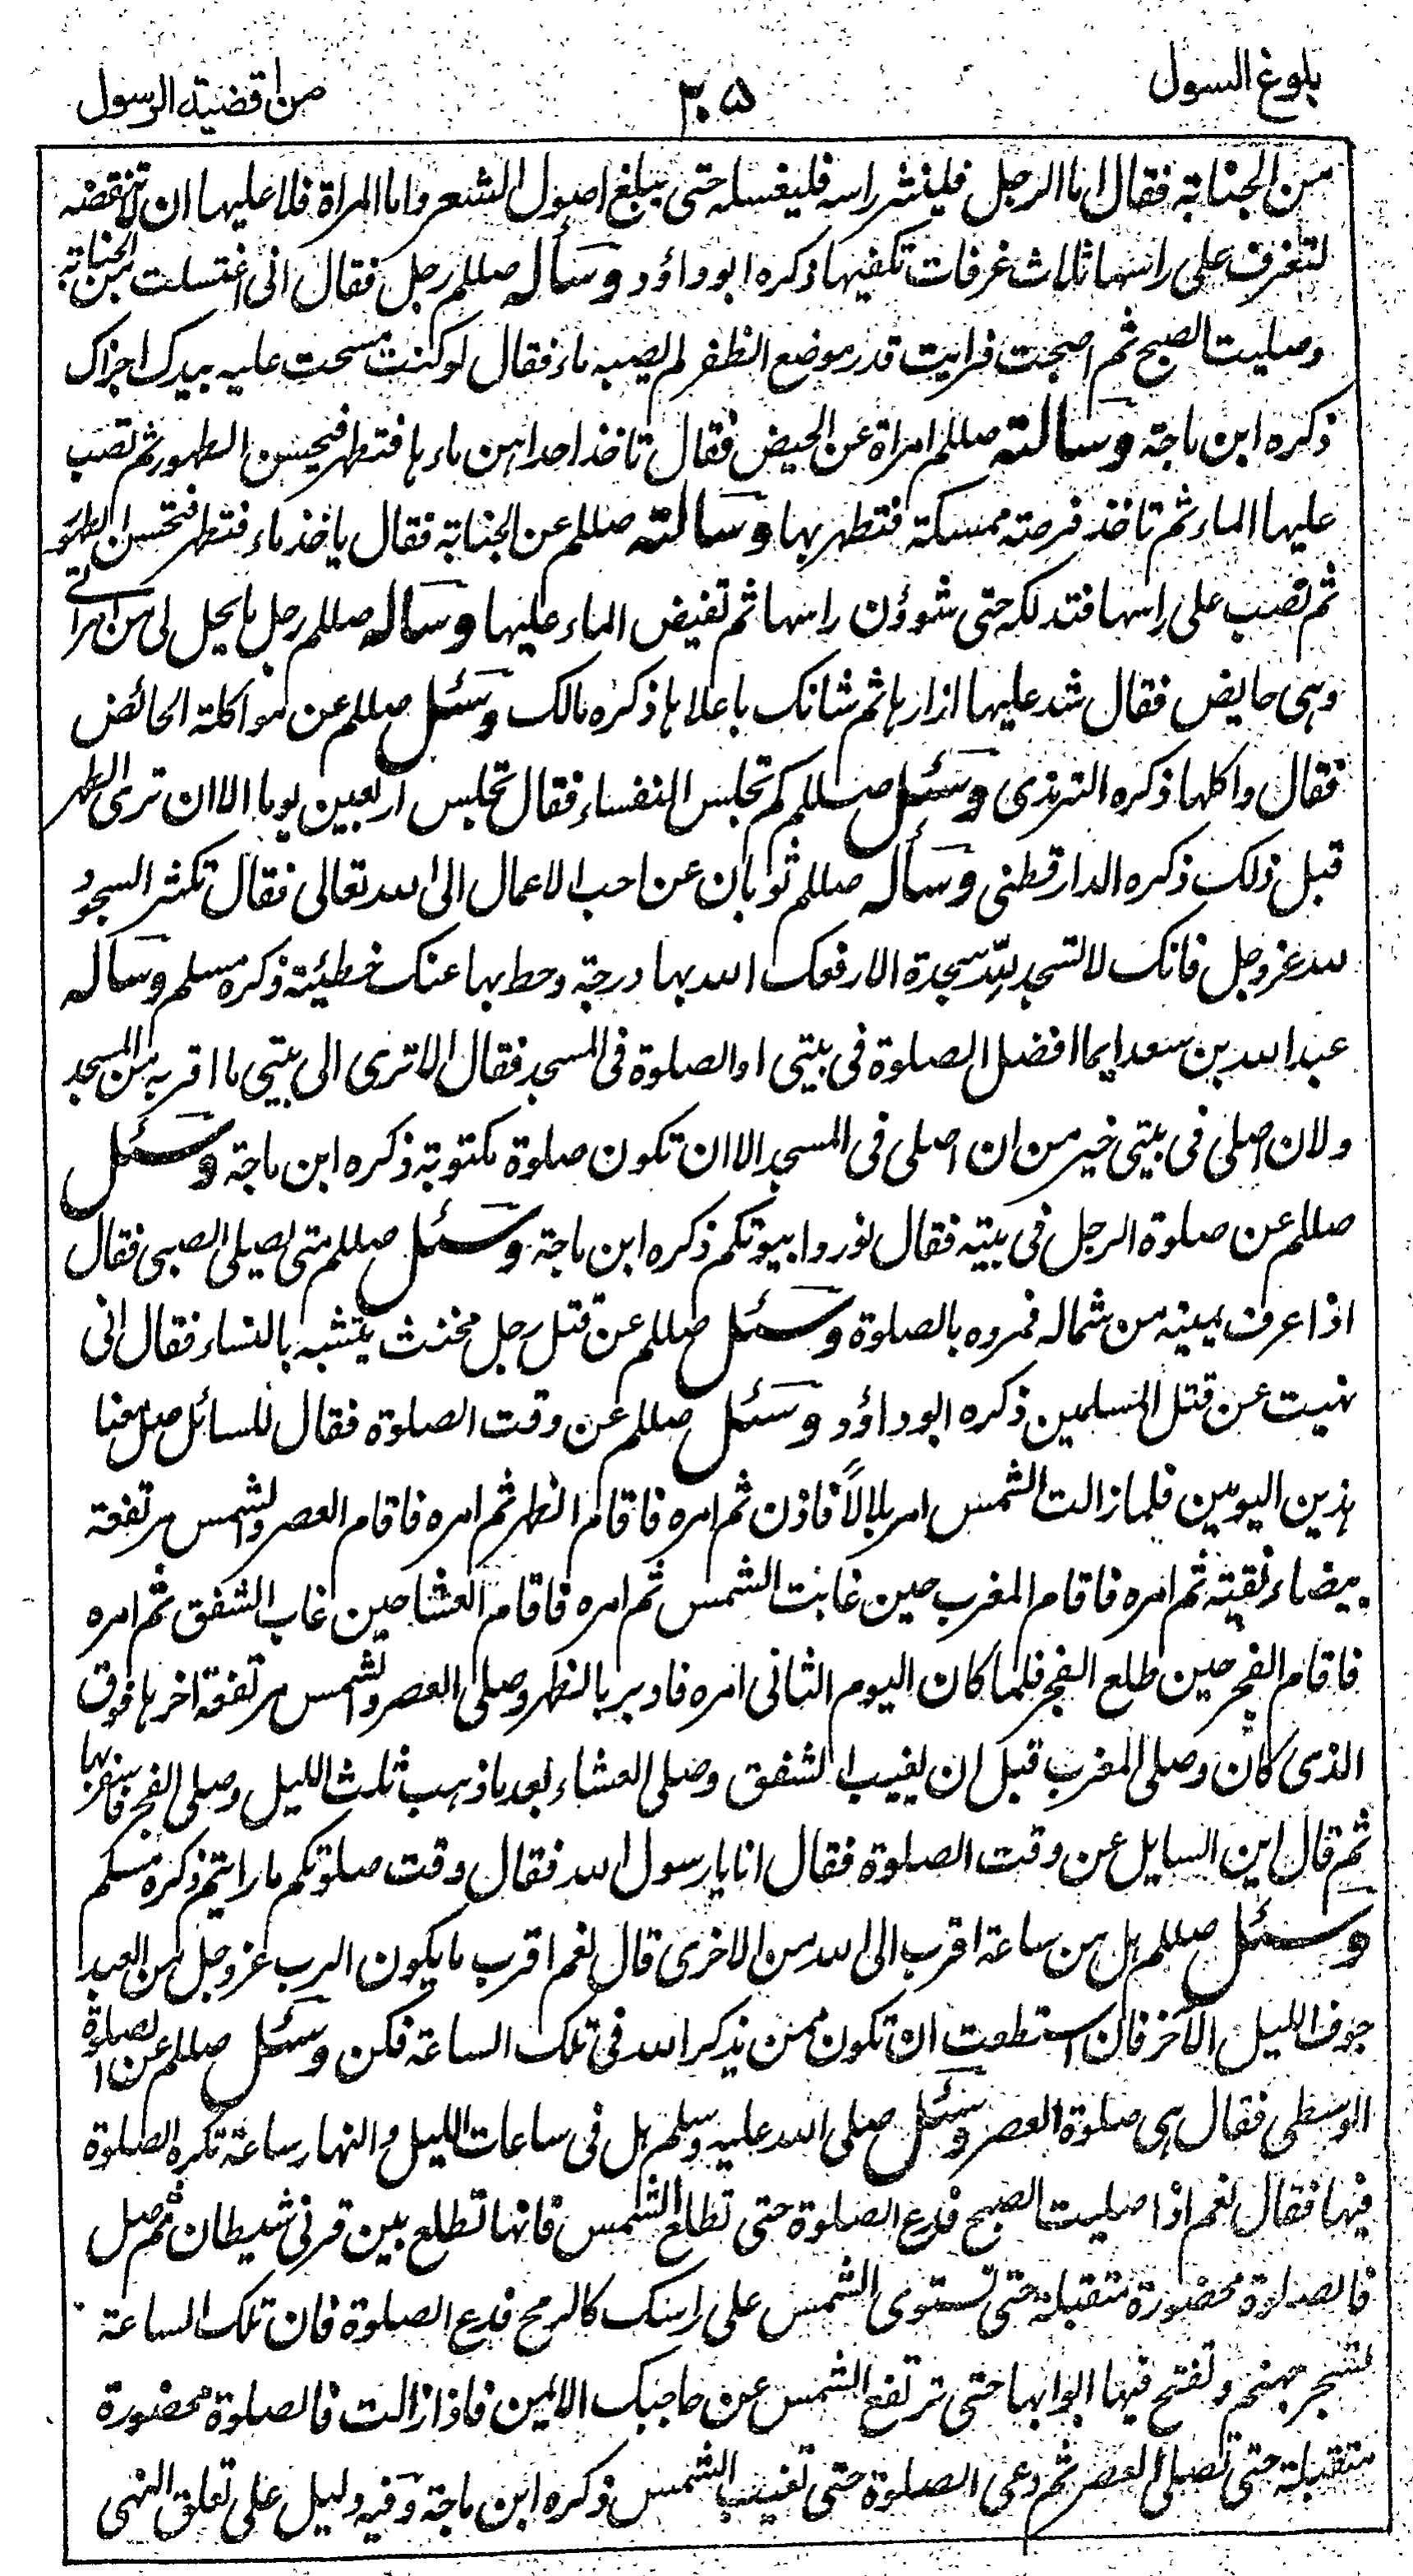 بلوغ السول
٣٠٥
من اقضية الرسول
من الجنابة فقال اما الرجل فلينشر راسه فليغسله حتى يبلغ اصول الشعر واما المراة فلا عليها ان لا تنقضه
لتغرف على راسها ثلاث غرفات تكفيها ذكره ابو داؤد وسأله صللم رجل فقال انى اغتسلت من الجنابة
وصليت الصبح ثم اصبحت فرايت قدر موضع الظفر لم يصبه ماء فقال لو كنت مسحت عليه بيدك اجزاك
ذكره ابن ماجة وسالته صللم امراة عن الحيض فقال تاخذ احداهن ماءها فتطهر فيحسن الطهور ثم تصب
عليها الماء ثم تاخذ فرصة ممسكة فتطهر بها وسالته صللم عن الجنابة فقال ياخذ ماء فتطهر فتحسن الطهور
ثم تصب على راسها فتدلكه حتى شوؤن راسها ثم تفيض الماء عليها وسأله صللم رجل ما يحل لى من امراتى
وهى حايض فقال شد عليها ازارها ثم شانك باعلاها ذكره مالك وسئل صللم عن مواكلة الحائض
فقال واكلها ذكره الترمذى وسئل صللم كم تجلس النفساء فقال تجلس اربعين يوما الا ان ترى الطهر
قبل ذلك ذكره الدارقطنى وسأله صللم ثوبان عن احب الاعمال الى الله تعالى فقال تكثر السجود
لله عز وجل فانك لا تسجد لله سجدة الا رفعك الله بها درجة وحط بها عنك خطيئة ذكره مسلم وسأله
عبد الله بن سعد ايما افضل الصلوة فى بيتى او الصلوة فى المسجد فقال الا ترى الى بيتى ما اقربه من المسجد
ولان اصلى فى بيتى خير من ان اصلى فى المسجد الا ان تكون صلوة مكتوبة ذكره ابن ماجة وسئل
صللم عن صلوة الرجل فى بيته فقال نوروا بيوتكم ذكره ابن ماجة وسئل صللم متى يصلى الصبى فقال
اذا عرف يمينه من شماله فمروه بالصلوة وسئل صللم عن قتل رجل مخنث يتشبه بالنساء فقال انى
نهيت عن قتل المسلمين ذكره ابو داؤد وسئل صللم عن وقت الصلوة فقال للسائل صل معنا
هذين اليومين فلما زالت الشمس امر بلالاً فاذن ثم امره فاقام الظهر ثم امره فاقام العصر والشمس مرتفعة
بيضاء نقية ثم امره فاقام المغرب حين غابت الشمس ثم امره فاقام العشا حين غاب الشفق ثم امره
فاقام الفجر حين طلع الفجر فلما كان اليوم الثانى امره فادبر بالظهر وصلى العصر والشمس مرتفعة اخرها فوق
الذى كان وصلى المغرب قبل ان يغيب الشفق وصلى العشاء بعد ما ذهب ثلث الليل وصلى الفجر فاسفر بها
ثم قال اين السايل عن وقت الصلوة فقال انا يا رسول الله فقال وقت صلوتكم ما رايتم ذكره مسلم
وسئل صللم هل من ساعة اقرب الى الله من الاخرى قال نعم اقرب ما يكون الرب عز وجل من العبد
جوف الليل الآخر فان استطعت ان تكون ممن يذكر الله فى تلك الساعة فكن وسئل صللم عن الصلوة
الوسطى فقال هى صلوة العصر وسئل صلى الله عليه وسلم هل فى ساعات الليل والنهار ساعة تكره الصلوة
فيها فقال نعم اذا صليت الصبح فدع الصلوة حتى تطلع الشمس فانها تطلع بين قرنى شيطان ثم صل
فالصلوة محضورة متقبلة حتى تستوى الشمس على راسك كالرمح فدع الصلوة فان تلك الساعة
تسجر جهنم وتفتح فيها ابوابها حتى ترتفع الشمس عن حاجبك الايمن فاذا زالت فالصلوة محضورة
متقبلة حتى تصلى العصر ثم دعى الصلوة حتى تغيب الشمس ذكره ابن ماجة وفيه دليل على تعلق النهى